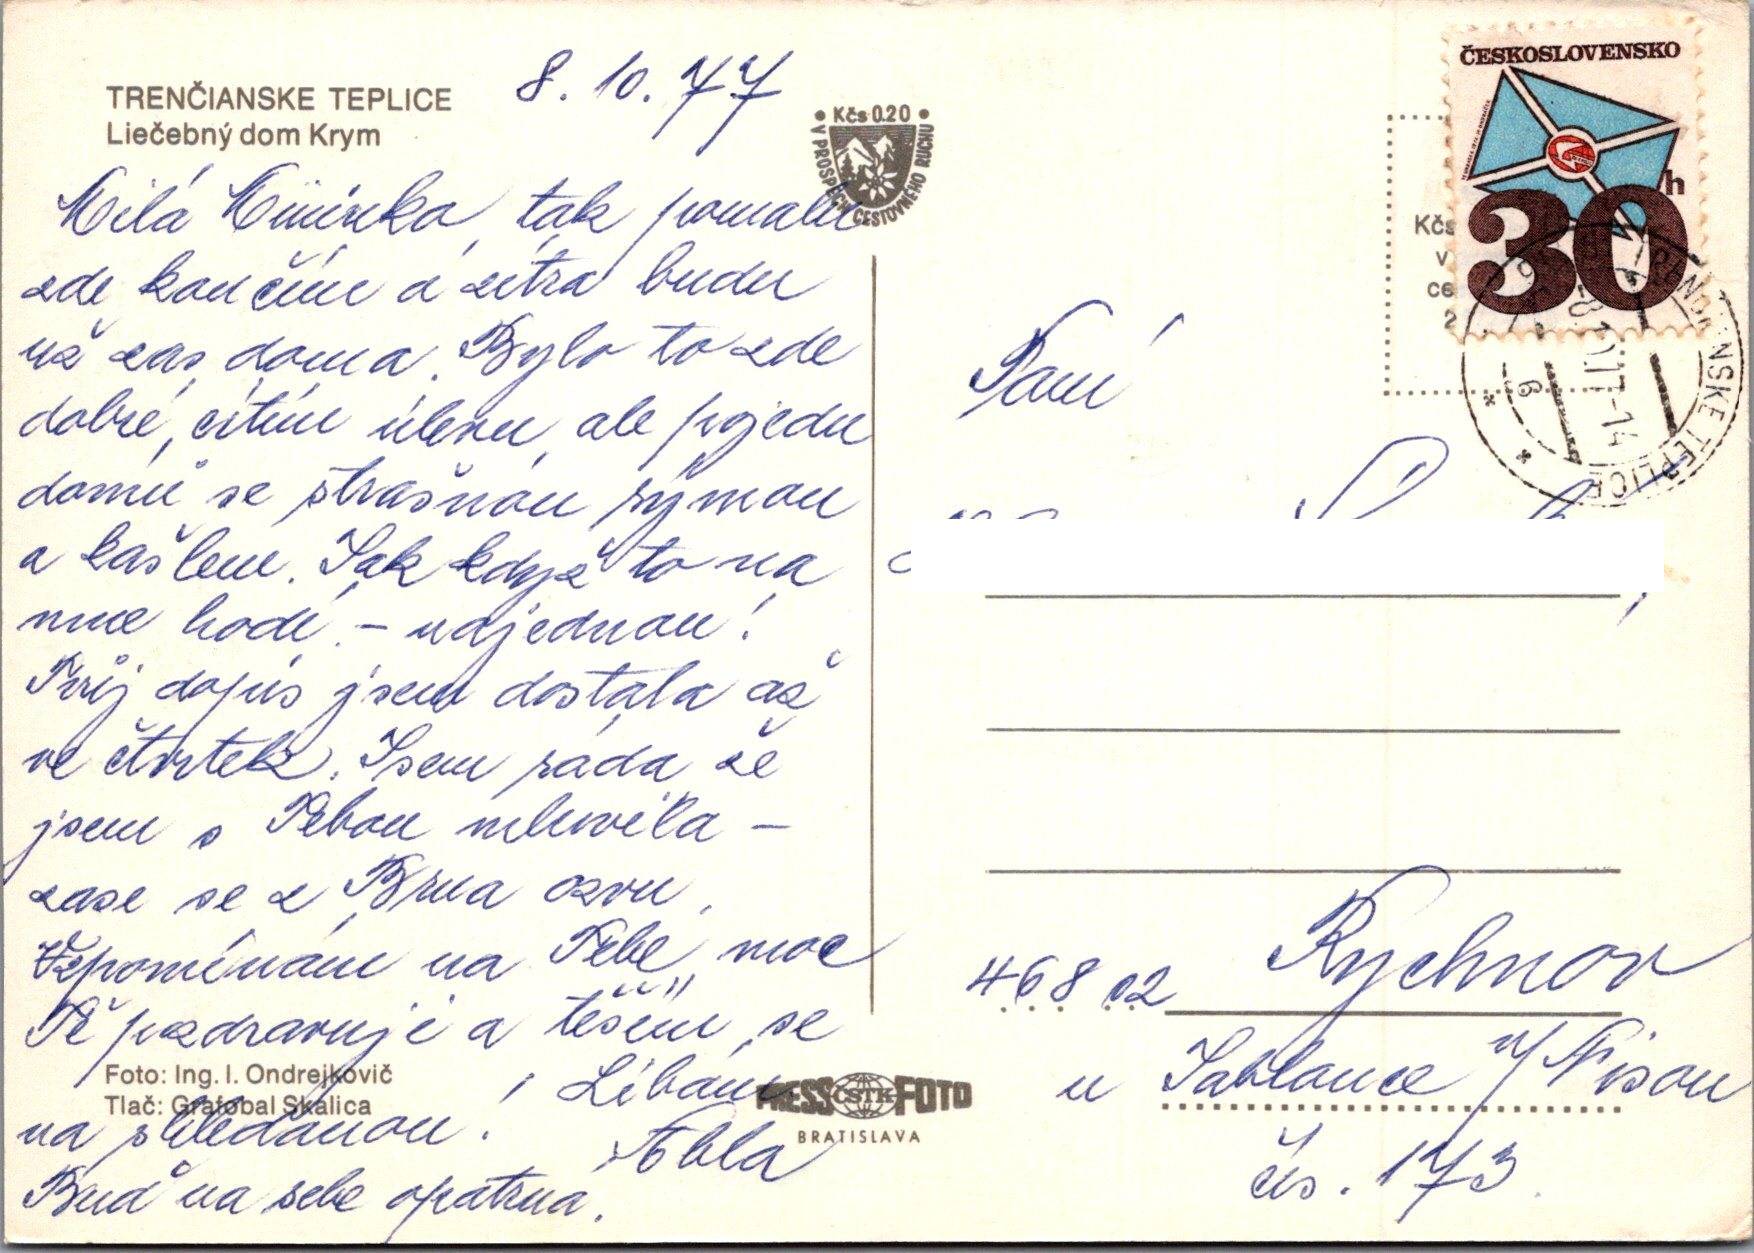 TRENČIANSKE TEPLICE
Liečebný dom Krym
8. 10. 77
Milá Mininko, tak pomalu
zde končím a zítra budu
už zas doma. Bylo to zde
dobré, cítím úlevu, ale pojedu
domů se strašnou rýmou
a kašlem. Jak když to na
mne hodí – najednou!
Tvůj dopis jsem dostala až
ve čtvrtek. Jsem ráda že
jsem s Tebou mluvila –
zase se z Brna ozvu.
Vzpomínám na Tebe, moc
Tě pozdravuji a těším se
na shledanou! Líbám
Bud' na sebe opatrna.
Foto: Ing. I. Ondrejkovič
Tlač: Grafobal Skalica
Kčs 0.20
V PROSPECH CESTOVNÉHO RUCHU
PRESS ČSTK FOTO
BRATISLAVA
ČESKOSLOVENSKO
30 h
Kčs
v
ce
2
TRENČIANSKE TEPLICE
Paní
468 02 Rychnov
u Jablonce n/Nisou
čís. 173